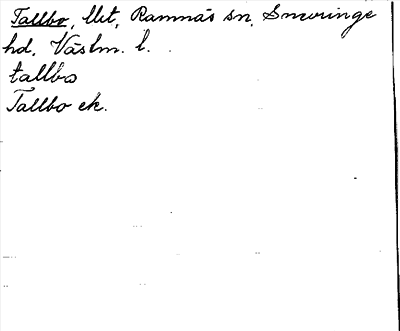 Tallbo, llt, Ramnäs sn, Snevringe
hd, Västm. l.
tallbo
Tallbo ek.